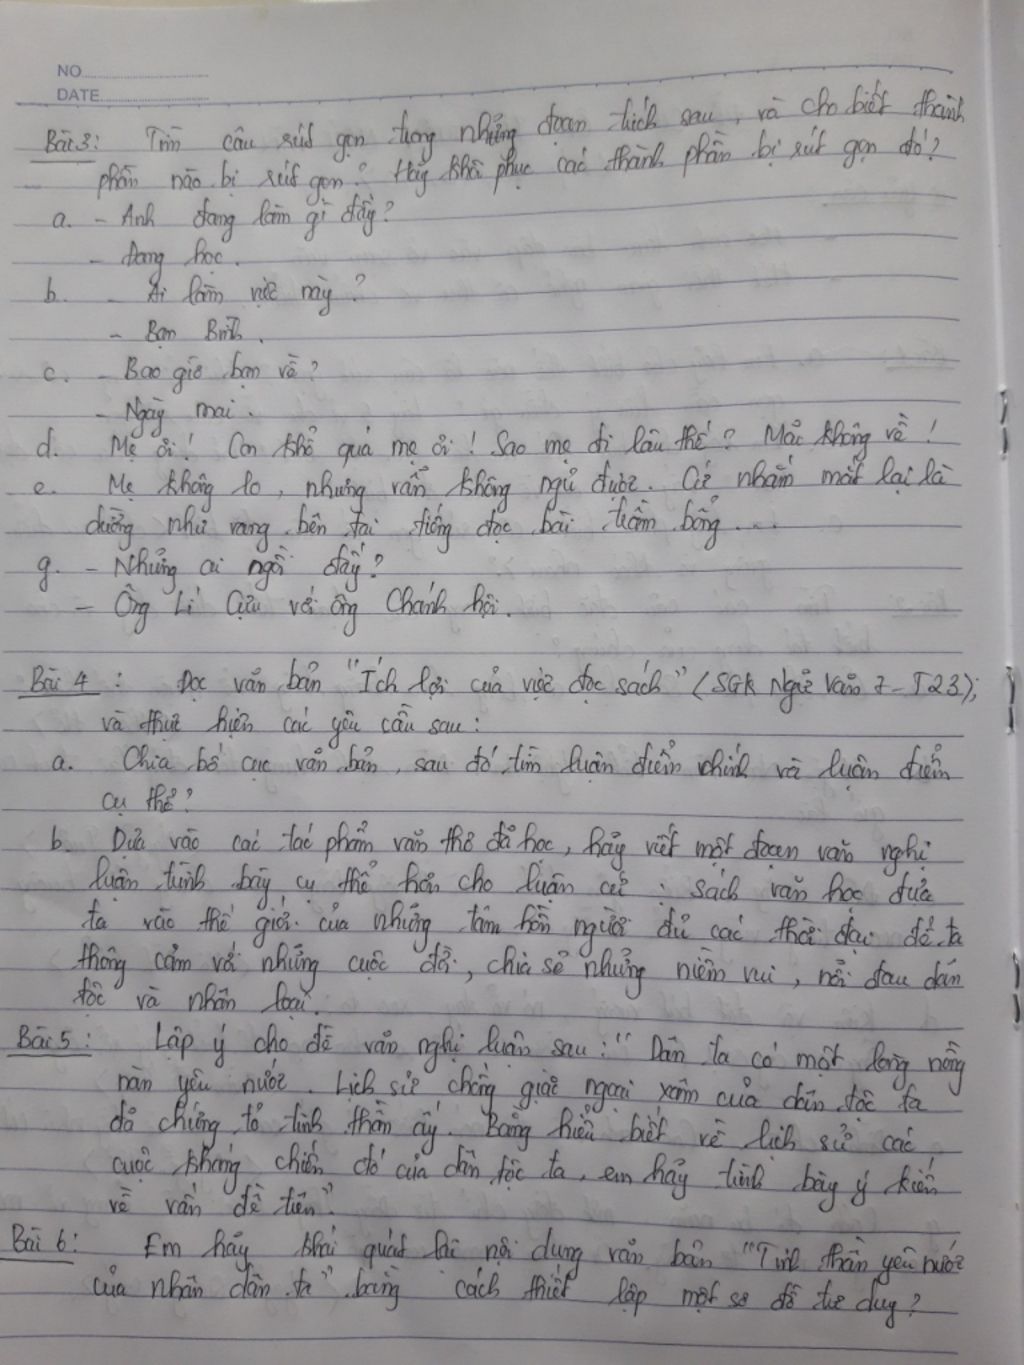 NO
DATE
Bài 3: Tìm câu rút gọn trong những đoạn trích sau, và cho biết thành
phần nào bị rút gọn? Hãy khôi phục các thành phần bị rút gọn đó?
a. - Anh đang làm gì đấy?
- Đang học.
b. - Ai làm việc này?
- Bạn Bình.
c. - Bao giờ bạn về?
- Ngày mai.
d. Mẹ ơi! Con khổ quá mẹ ơi! Sao mẹ đi lâu thế? Mãi không về!
e. Mẹ không lo, nhưng vẫn không ngủ được. Cứ nhắm mắt lại là
dường như vang bên tai tiếng đọc bài trầm bổng...
g. - Những ai ngồi đấy?
- Ông Lí Cựu với ông Chánh hội.
Bài 4: Đọc văn bản "Ích lợi của việc đọc sách" (SGK Ngữ Văn 7-T23);
và thực hiện các yêu cầu sau:
a. Chia bố cục văn bản, sau đó tìm luận điểm chính và luận điểm
cụ thể?
b. Dựa vào các tác phẩm văn thơ đã học, hãy viết một đoạn văn nghị
luận trình bày cụ thể hơn cho luận cứ: sách văn học đưa
ta vào thế giới của những tâm hồn người đủ các thời đại để ta
thông cảm với những cuộc đời, chia sẻ những niềm vui, nỗi đau dân
tộc và nhân loại.
Bài 5: Lập ý cho đề văn nghị luận sau: "Dân ta có một lòng nồng
nàn yêu nước. Lịch sử chống giặc ngoại xâm của dân tộc ta
đã chứng tỏ tinh thần ấy. Bằng hiểu biết về lịch sử các
cuộc kháng chiến đó của dân tộc ta, em hãy trình bày ý kiến
về vấn đề trên"
Bài 6: Em hãy khái quát lại nội dung văn bản "Tinh thần yêu nước
của nhân dân ta" bằng cách thiết lập một sơ đồ tư duy?